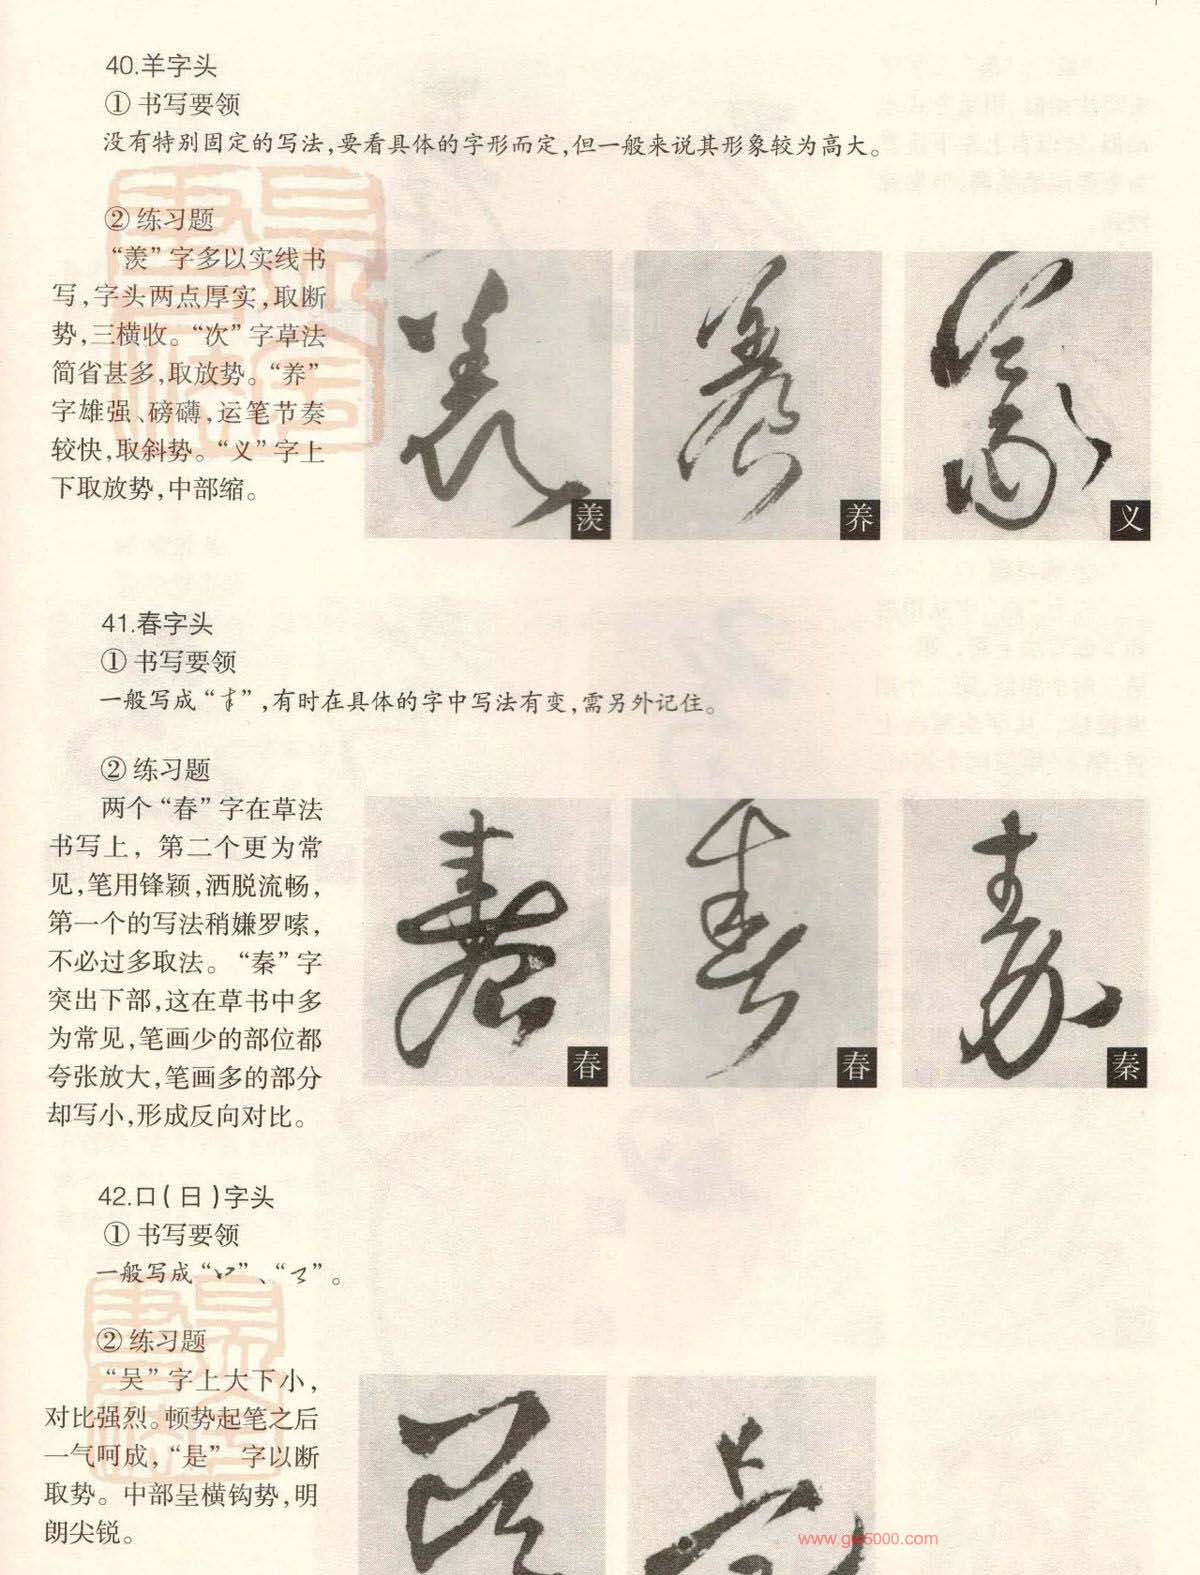 40.羊字头
① 书写要领
没有特别固定的写法,要看具体的字形而定,但一般来说其形象较为高大。
② 练习题
“羡”字多以实线书
写,字头两点厚实,取断
势,三横收。“次”字草法
简省甚多,取放势。“养”
字雄强、磅礴,运笔节奏
较快,取斜势。“义”字上
下取放势,中部缩。
羡
养
义
41.春字头
① 书写要领
一般写成“”,有时在具体的字中写法有变,需另外记住。
② 练习题
两个“春”字在草法
书写上，第二个更为常
见,笔用锋颖,洒脱流畅,
第一个的写法稍嫌罗嗦,
不必过多取法。“秦”字
突出下部,这在草书中多
为常见,笔画少的部位都
夸张放大,笔画多的部分
却写小,形成反向对比。
春
春
秦
42.口(日)字头
① 书写要领
一般写成“”、“”。
② 练习题
“吴”字上大下小，
对比强烈。顿势起笔之后
一气呵成，“是”字以断
取势。中部呈横钩势,明
朗尖锐。